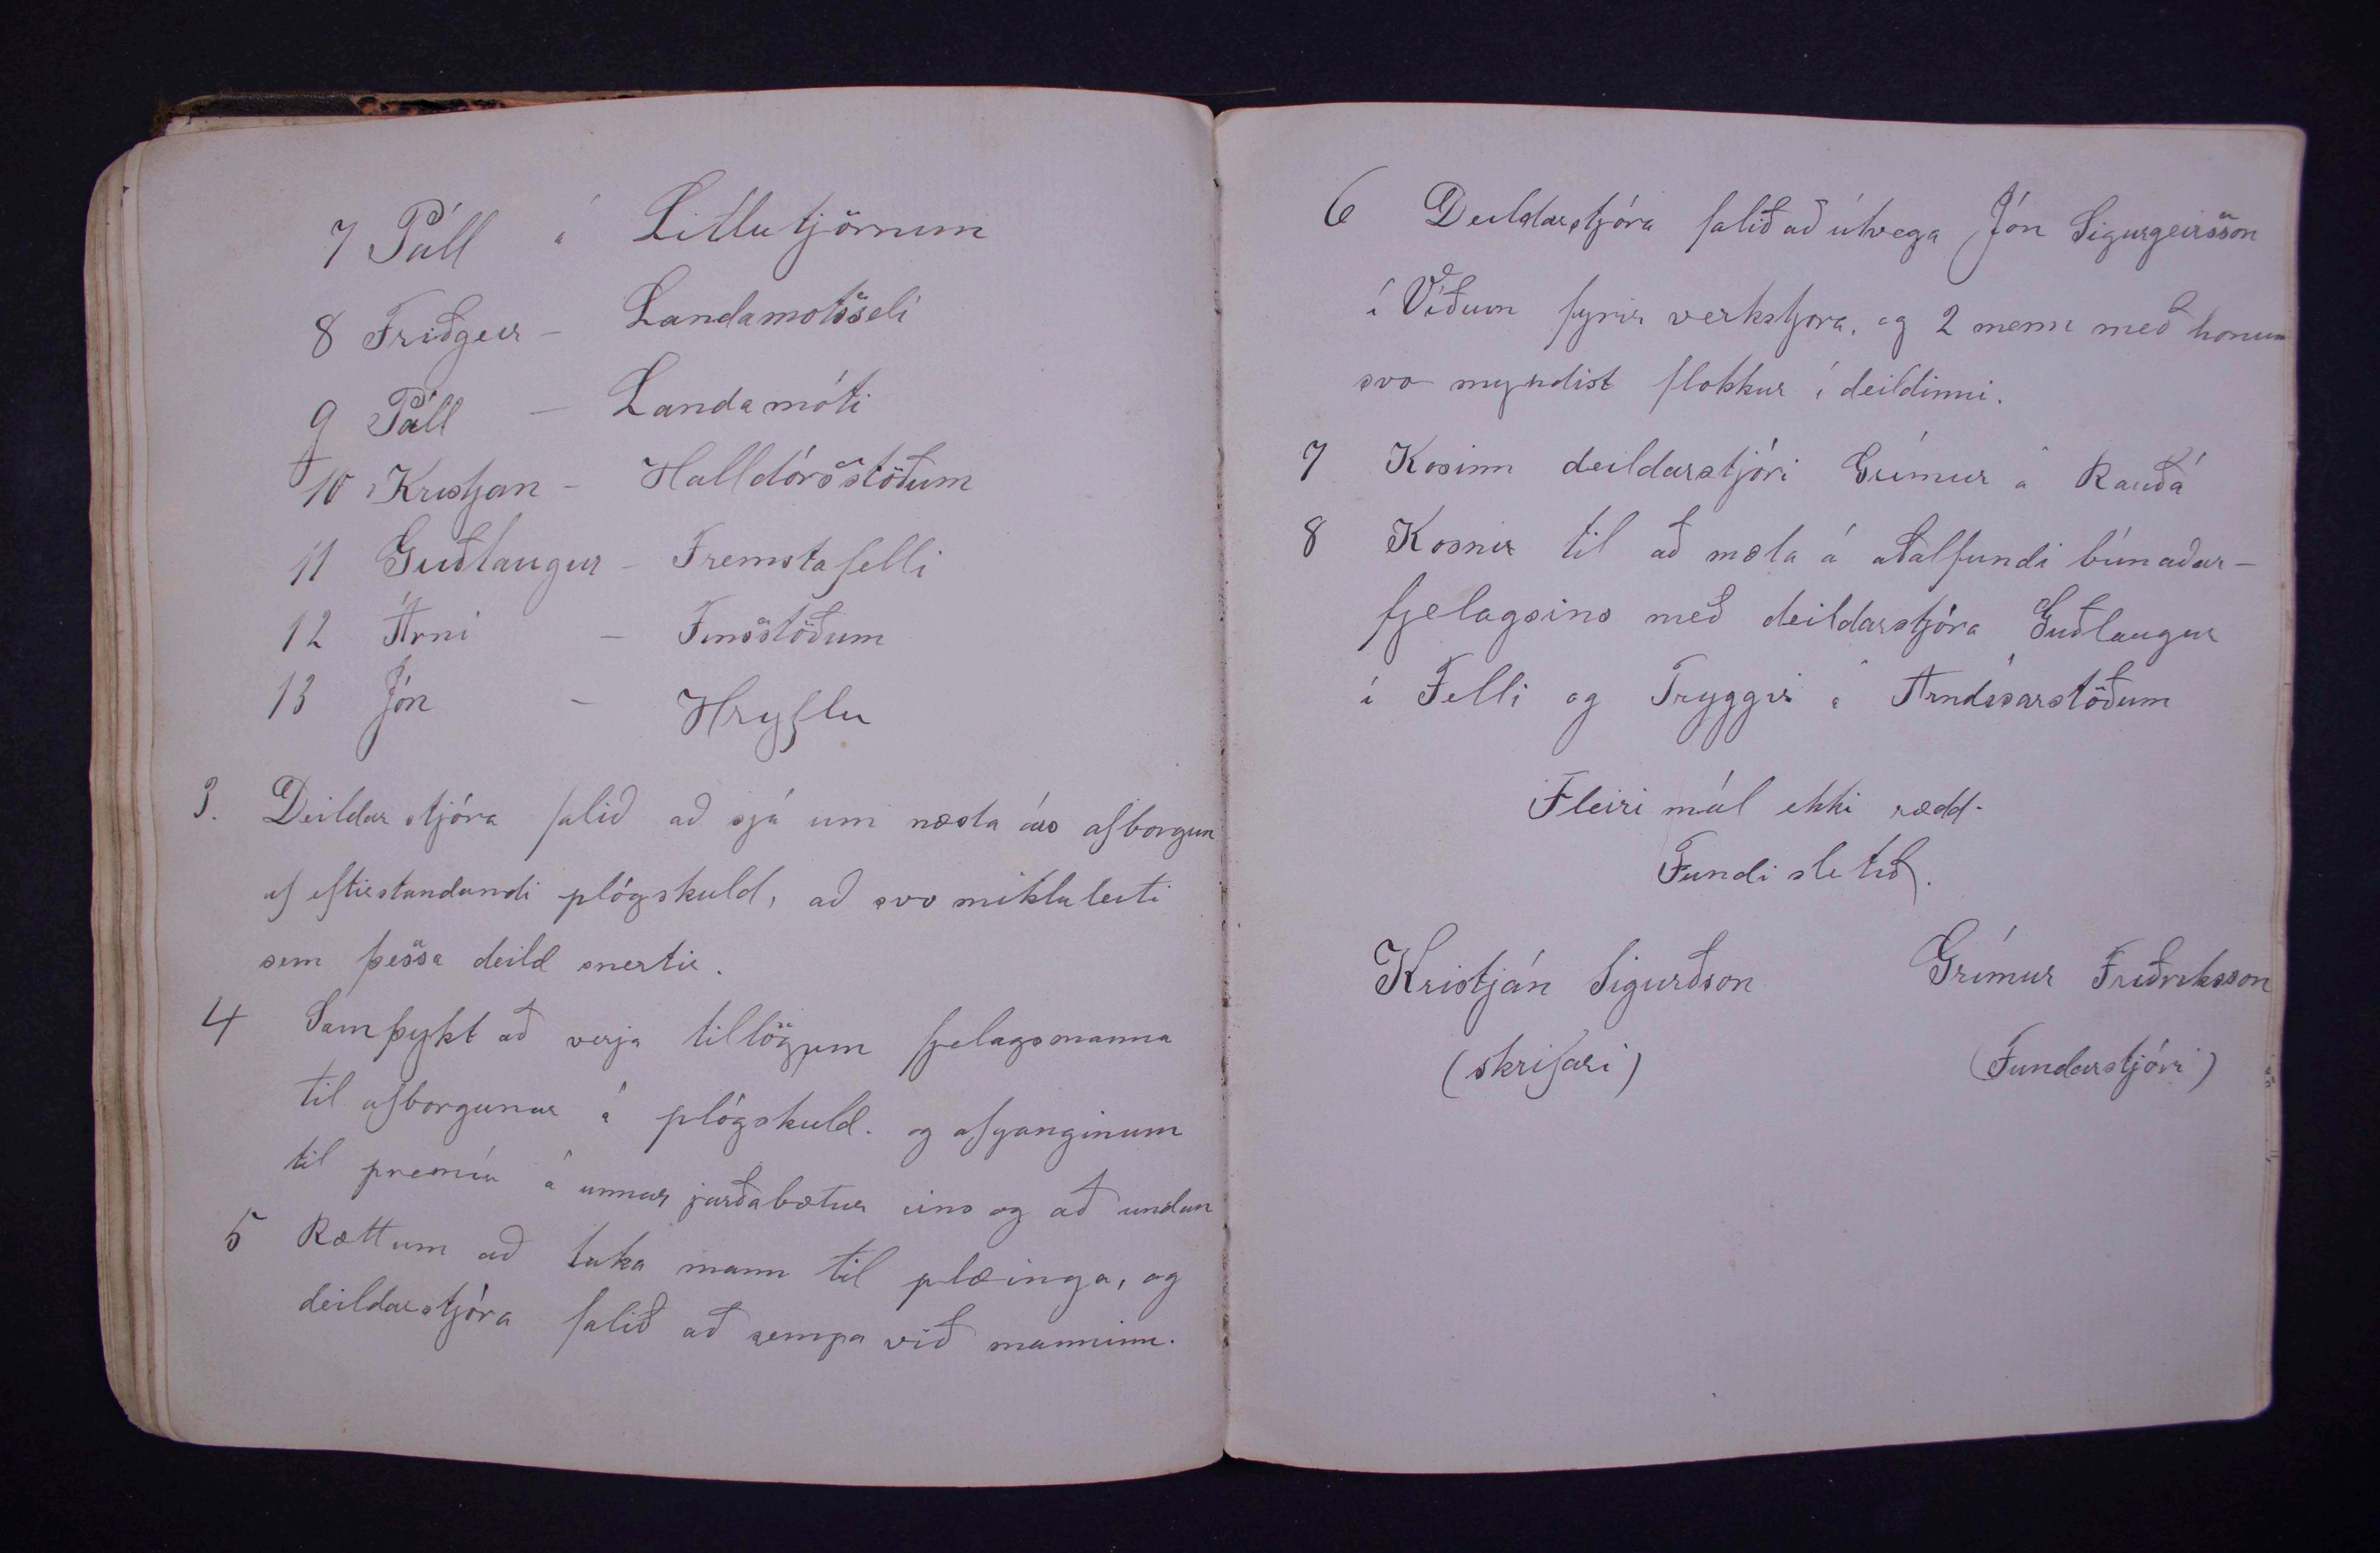 7 Páll á Litlutjörnum
8 Friðgeir - Landamotsseli
9 Páll - Landamóti
10 Kristján - Halldórsstöðum
11 Guðlaugur - Fremstafelli
12 Árni - Finsstöðum
13 Jón - Hryflu
3. Deildarstjóra falið að sjá um næsta árs afborgun
af eftirstandandi plógskuld, að svo miklu leiti
sem þessa deild snertir.
4 Samþykt að verja tillögum fjelagsmanna
til afborgunar á plógskuld. og afganginum
til premíu á unnar jarðabætur eins og að undan
5 Rætt um að taka mann til plæinga, og
deildarstjóra falið að sempa við manninn.
6 Deildarstjóra falið að útvega Jón Sigurgeirsson
í Víðum fyrir verkstjora, og 2 menn með honum
svo myndist flokkur í deildinni.
7 Kosinn deildarstjóri Grímur á Rauðá
8 Kosnir til að mæta á aðalfundi búnaðar-
fjelagsins með deildarstjóra Guðlaugur
í Felli og Tryggvi á Arndísarstöðum
Fleiri mál ekki rædd.
Fundi slitið.
Kristján Sigurðson Grímur Friðriksson
(skrifari) (Fundarstjóri)